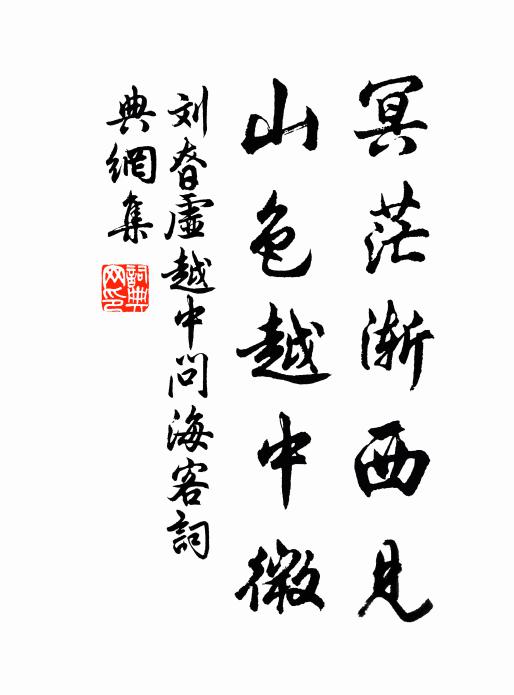 冥茫渐西见
山色越中微
刘眘虚越中问海客詞
典網集
詞典
网印